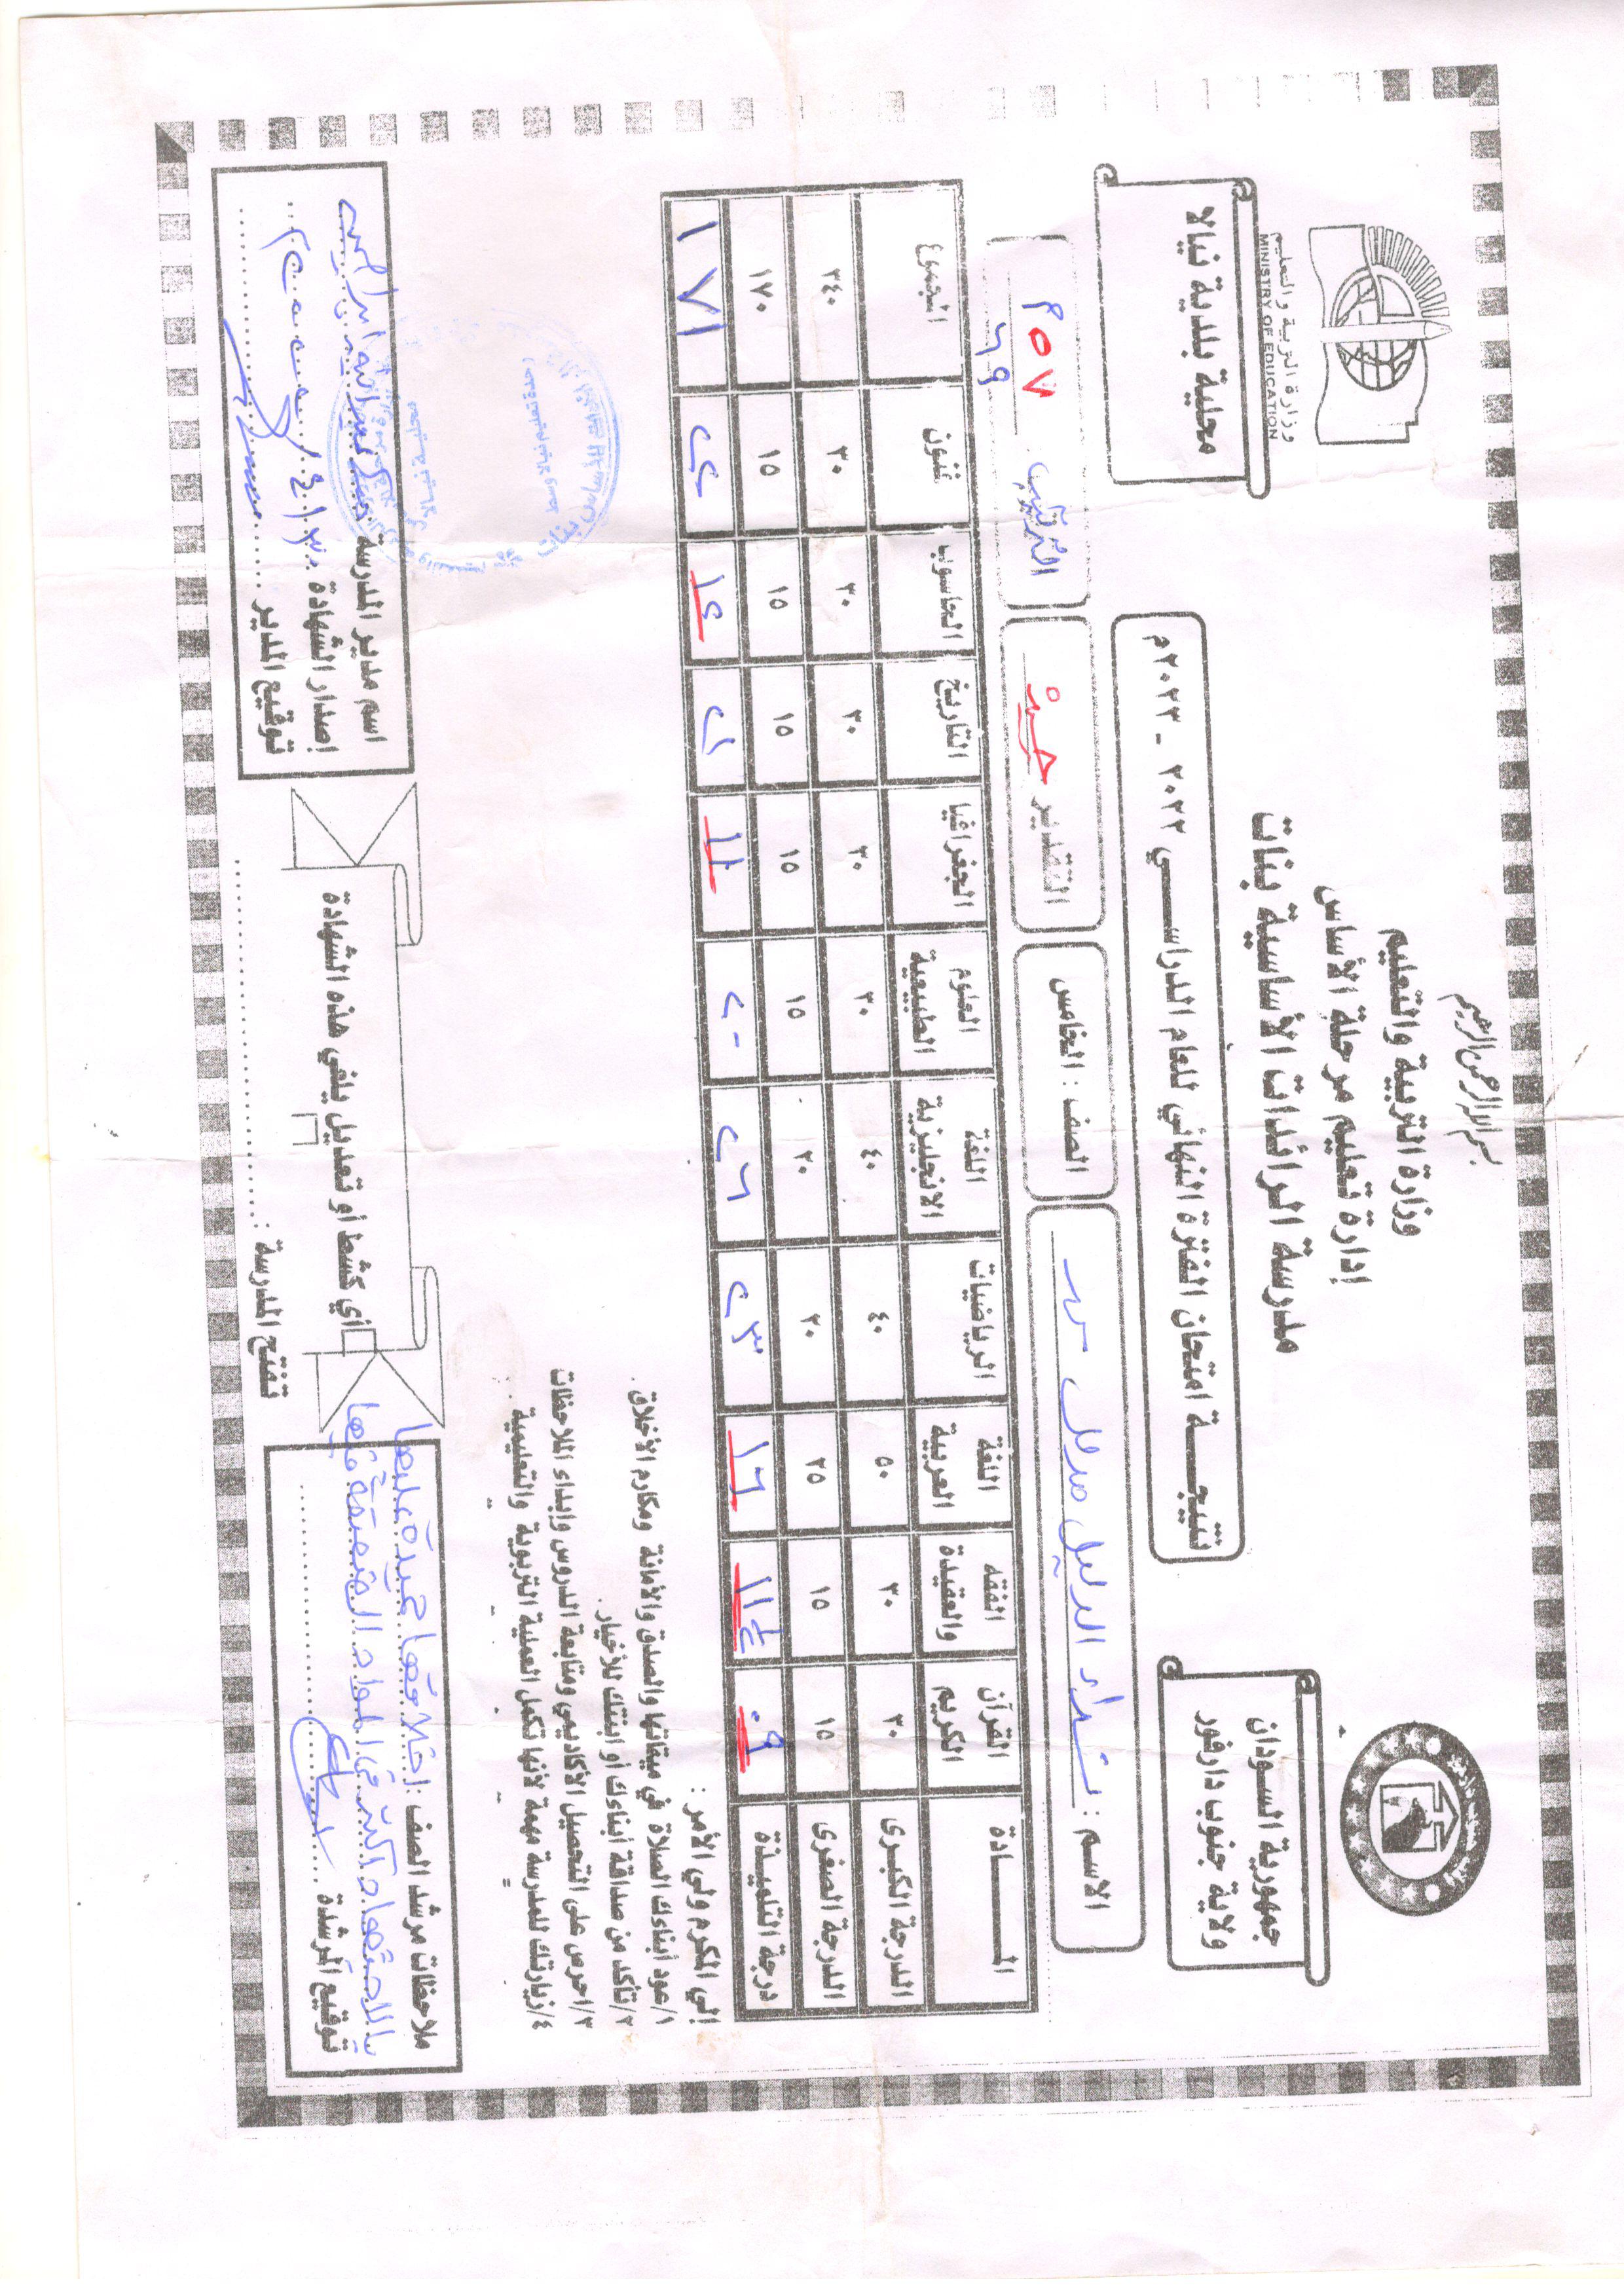 بسم الله الرحمن الرحيم
وزارة التربية والتعليم
إدارة تعليم مرحلة الأساس
مدرسة الرائدات الأساسية بنات
جمهورية السودان
ولاية جنوب دارفور
وزارة التربية والتعليم
MINISTRY OF EDUCATION
محلية بلدية نيالا
نتيجـــة امتحان الفترة النهائي للعام الدراســـي ٢٠٢٢ - ٢٠٢٣م
الاسم : الصف : الخامس التقدير جيد الترتيب : ٥٧
٦٩
المـــــادة القرآن الكريم الفقه والعقيدة اللغة العربية الرياضيات اللغة الانجليزية العلوم الطبيعية الجغرافيا التاريخ الحاسوب فنون المجموع
الدرجة الكبرى ٣٠ ٣٠ ٥٠ ٤٠ ٤٠ ٣٠ ٣٠ ٣٠ ٣٠ ٣٠ ٣٤٠
الدرجة الصغرى ١٥ ١٥ ٢٥ ٢٠ ٢٠ ١٥ ١٥ ١٥ ١٥ ١٥ ١٧٠
درجة التلميذة ٠٩ ١١٤ ١٦ ٢٣ ٢٦ ٢٠ ١١ ٢١ ١٤ ٢٤ ١٧١
إلي المكرم ولي الأمر :
١/عود أبناءك الصلاة في ميقاتها والصدق والأمانة ومكارم الأخلاق .
٢/تأكد من صداقة أبناءك أو ابنتك للأخيار .
٣/احرص على التحصيل الأكاديمي ومتابعة الدروس وإبداء الملاحظات
٤/زيارتك للمدرسة مهمة لأنها تكمل العملية التربوية والتعليمية .
ملاحظات مرشد الصف : اخلاقها جيدة عليها
بالاجتهاد اكثر في المواد الضعيفة فيها
توقيع المرشدة
أي كشط أو تعديل يلغي هذه الشهادة
تفتح المدرسة :
اسم مدير المدرسة
إصدار الشهادة ٣٠/٤/٢٠٢٢م
توقيع المدير